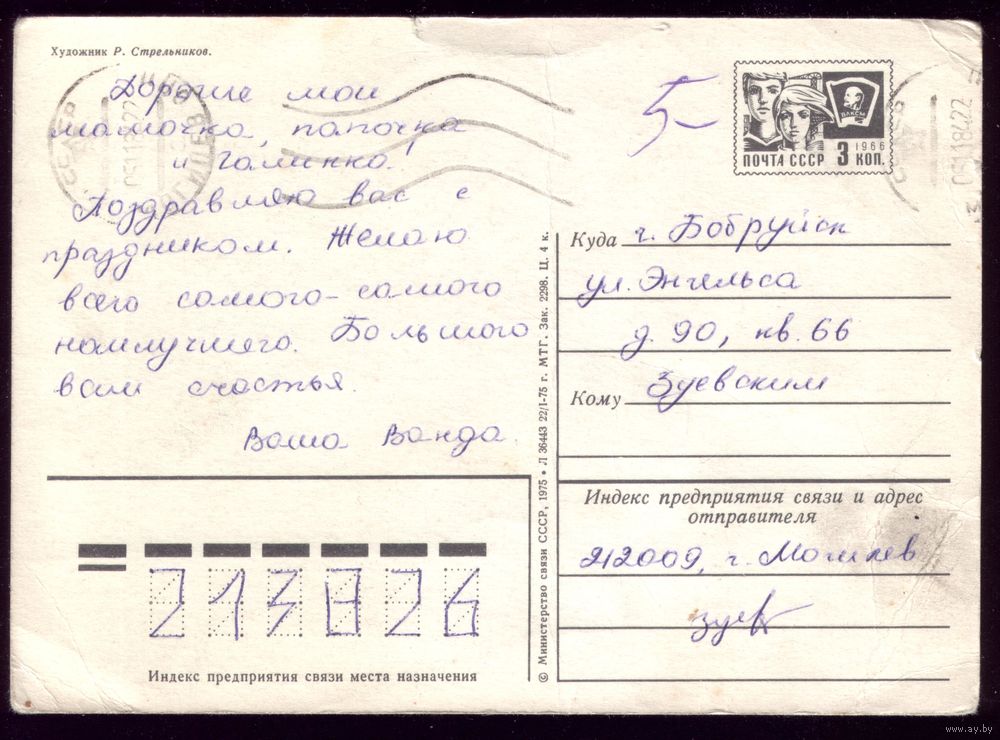 Художник Р. Стрельников.
Дорогие мои
мамочка, папочка
и Галинка!
Поздравляю вас с
праздником. Желаю
всего самого-самого
наилучшего. Большого
вам счастья.
Ваша Ванда.
5
ВЛКСМ
1966
ПОЧТА СССР 3 КОП.
Куда г. Бобруйск
ул. Энгельса
д. 90, кв. 66
Кому Зуевским
© Министерство связи СССР, 1975 • Л 36443 22/I-75 г. МТГ. Зак. 2298. Ц. 4 к.
Индекс предприятия связи и адрес
отправителя
212009, г. Могилев
Зуев
213826
Индекс предприятия связи места назначения
www.ay.by